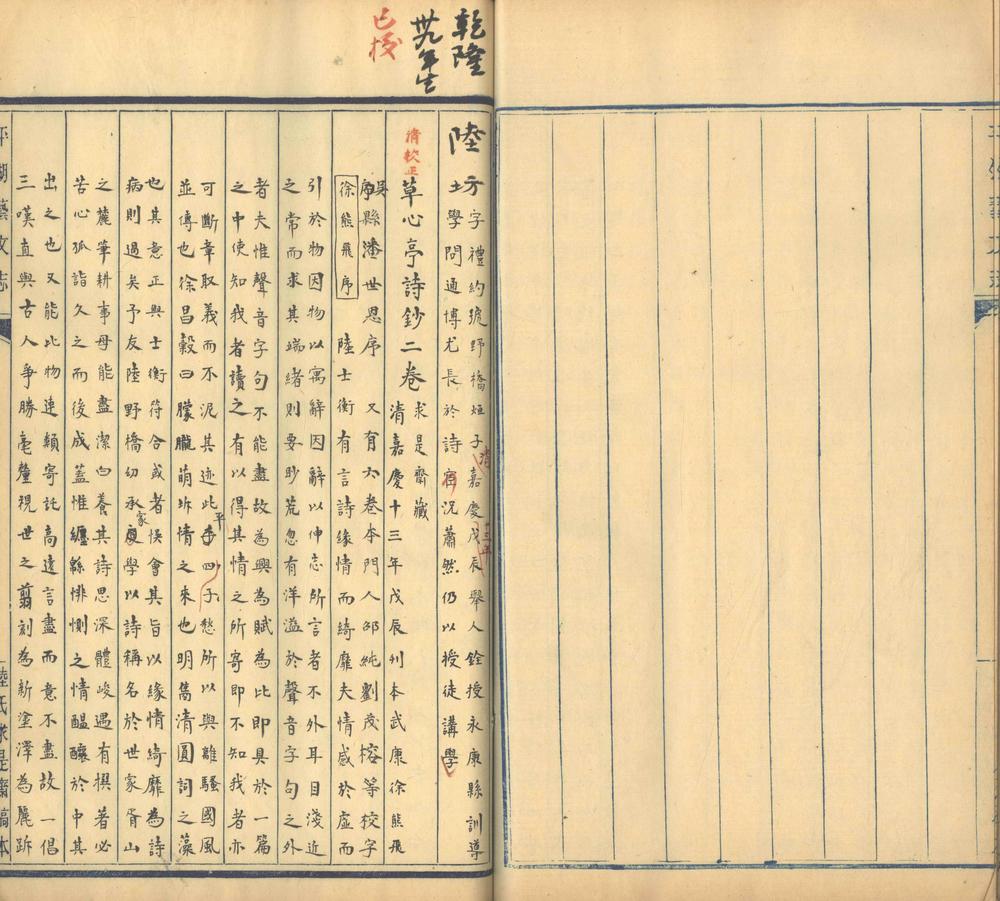 乾隆
卅九年生
已校
陸坊字禮約號野橋烜子清嘉慶戊辰十三年舉人銓授永康縣訓導
學問通博尤長於詩宦況蕭然仍以授徒講學
清欽正
草心亭詩鈔二卷
求是齋藏
清嘉慶十三年戊辰刊本武康徐熊飛
序吳縣潘世恩序又有六卷本門人邵純劉茂榕等校字
徐熊飛序
陸士衡有言詩緣情而綺靡夫情感於虛而
引於物因物以寓辭因辭以伸志所言者不外耳目淺近
之常而求其端緒則要眇荒忽有洋溢於聲音字句之外
者夫惟聲音字句不能盡故為興為賦為比即具於一篇
之中使知我者讀之有以得其情之所寄即不知我者亦
可斷章取義而不泥其迹此平子四愁所以與離騷國風
並傳也徐昌穀曰朦朧萌坼情之來也明雋清圓詞之藻
也其意正與士衡符合或者悞會其旨以緣情綺靡為詩
病則過矣予友陸野橋幼承家學以詩稱名於世家胥山
之麓筆耕事母能盡潔白養其詩思深體峻遇有撰著必
苦心孤詣久之而後成蓋惟纏緜悱惻之情醞釀於中其
出之也又能比物連類寄託高遠言盡而意不盡故一倡
三嘆直與古人爭勝毫釐視世之翦刻為新塗澤為麗跡
平湖藝文志
陸氏求是齋稿本